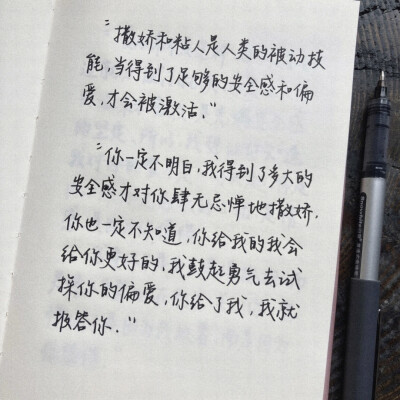 “撒娇和粘人是人类的被动技
能,当得到了足够的安全感和偏
爱,才会被激活.”
“你一定不明白,我得到了多大的
安全感才对你肆无忌惮地撒娇.
你也一定不知道,你给我的我会
给你更好的,我鼓起勇气去试
探你的偏爱,你给了我,我就
报答你.”